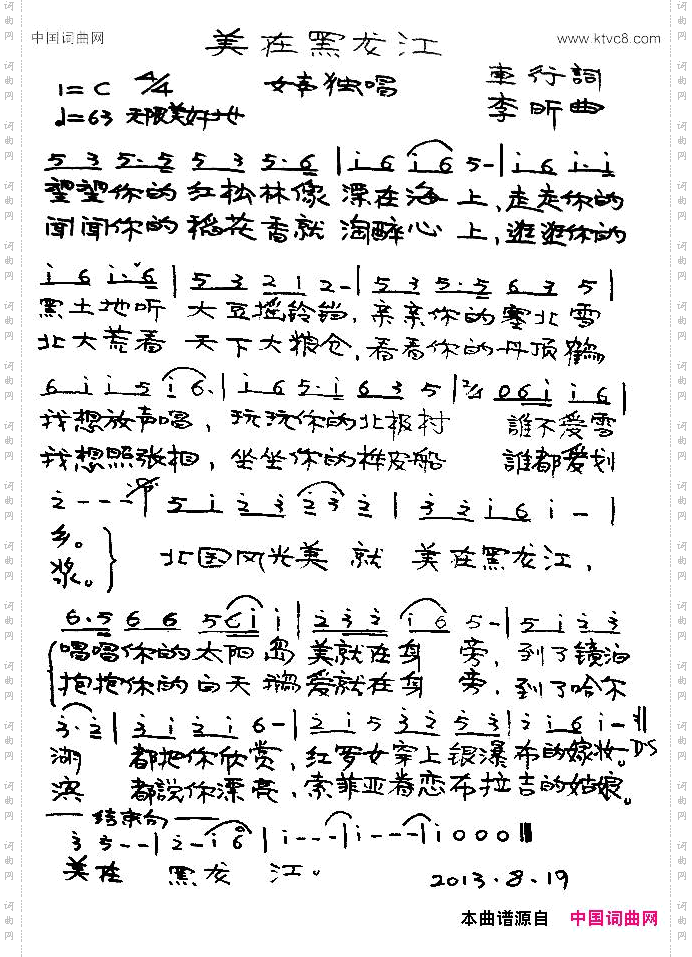 中国词曲网
www.ktvc8.com
美在黑龙江
1=C 4/4 独唱 車行詞
♩=63 无限美好地 李昕曲
5 3 5·5 5 3 5·6 | i 6 i 6 5 - | i 6 i·i
望望你的红松林像漂在海上,走走你的
闻闻你的稻花香就淘醉心上,逛逛你的
i 6 i·6 | 5 3 2 1 2 - | 5 3 5·5 6 3 5 |
黑土地听大豆摇铃铛,亲亲你的塞北雪
北大荒看天下大粮仓,看看你的丹顶鹤
6 i i 5 i 6· | i 6 5·i 6 3 5 | 2/4 0 6 i i i 6 |
我想放声唱,玩玩你的北极村 誰不爱雪
我想照张相,坐坐你的桦皮船 誰都爱划
2̇ - - - | 5 i 2̇ 3̇ 2̇ 3̇ 2̇ | 3̇ 2̇ i 6 i - |
乡。
浆。
北国风光美就美在黑龙江,
6·5 6 6 5 6 i i | 2̇ 3̇ 2̇ i 6 5 - | 5 i 2̇ 3̇
唱唱你的太阳岛美就在身旁,到了镜泊
抱抱你的白天鹅爱就在身旁,到了哈尔
3̇·2̇ | 3̇ i 2̇ i 6 - | 2̇ i 5 3̇ 2̇ 5 3̇ | 2̇ i 6 i - :|| D.S
湖 都把你欣赏,红罗女穿上银瀑布的嫁妆。
滨 都説你漂亮,索菲亚眷恋布拉吉的姑娘。
结束句
3̇ 5 - - | 2̇ - i 6 | i - - - | i - - - | i 0 0 0 ||
美在 黑龙 江。
2013·8·19
本曲谱源自 中国词曲网